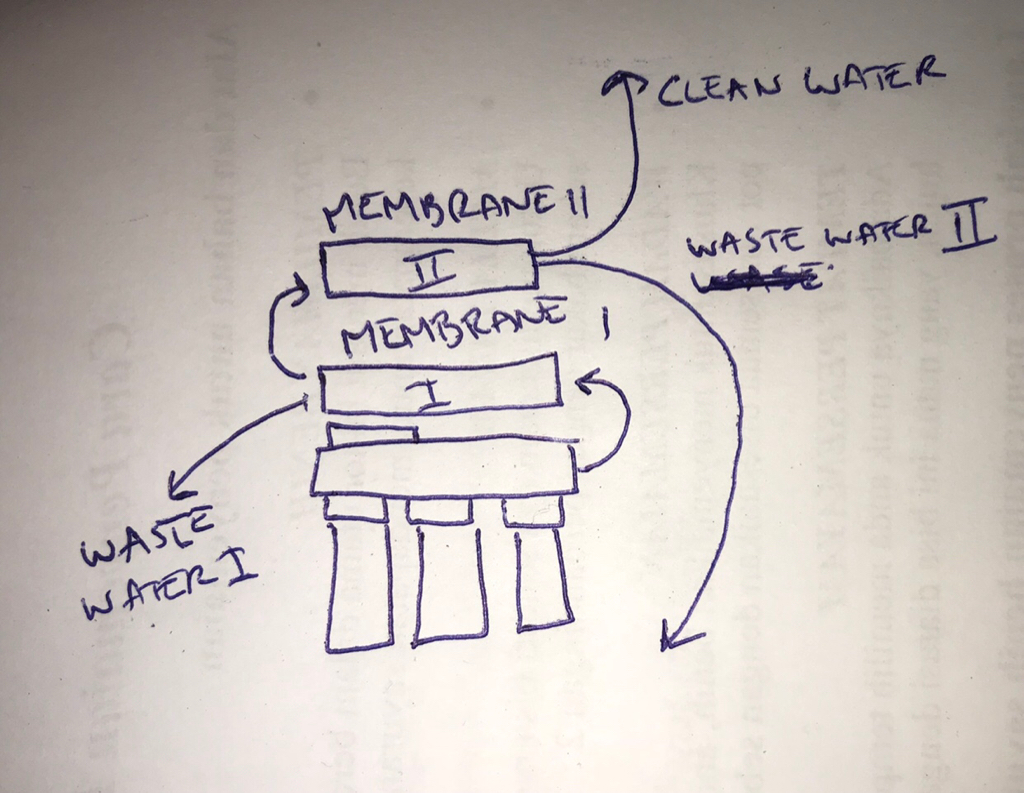 CLEAN WATER
MEMBRANE II
WASTE WATER II
II
MEMBRANE I
I
WASTE
WATER I